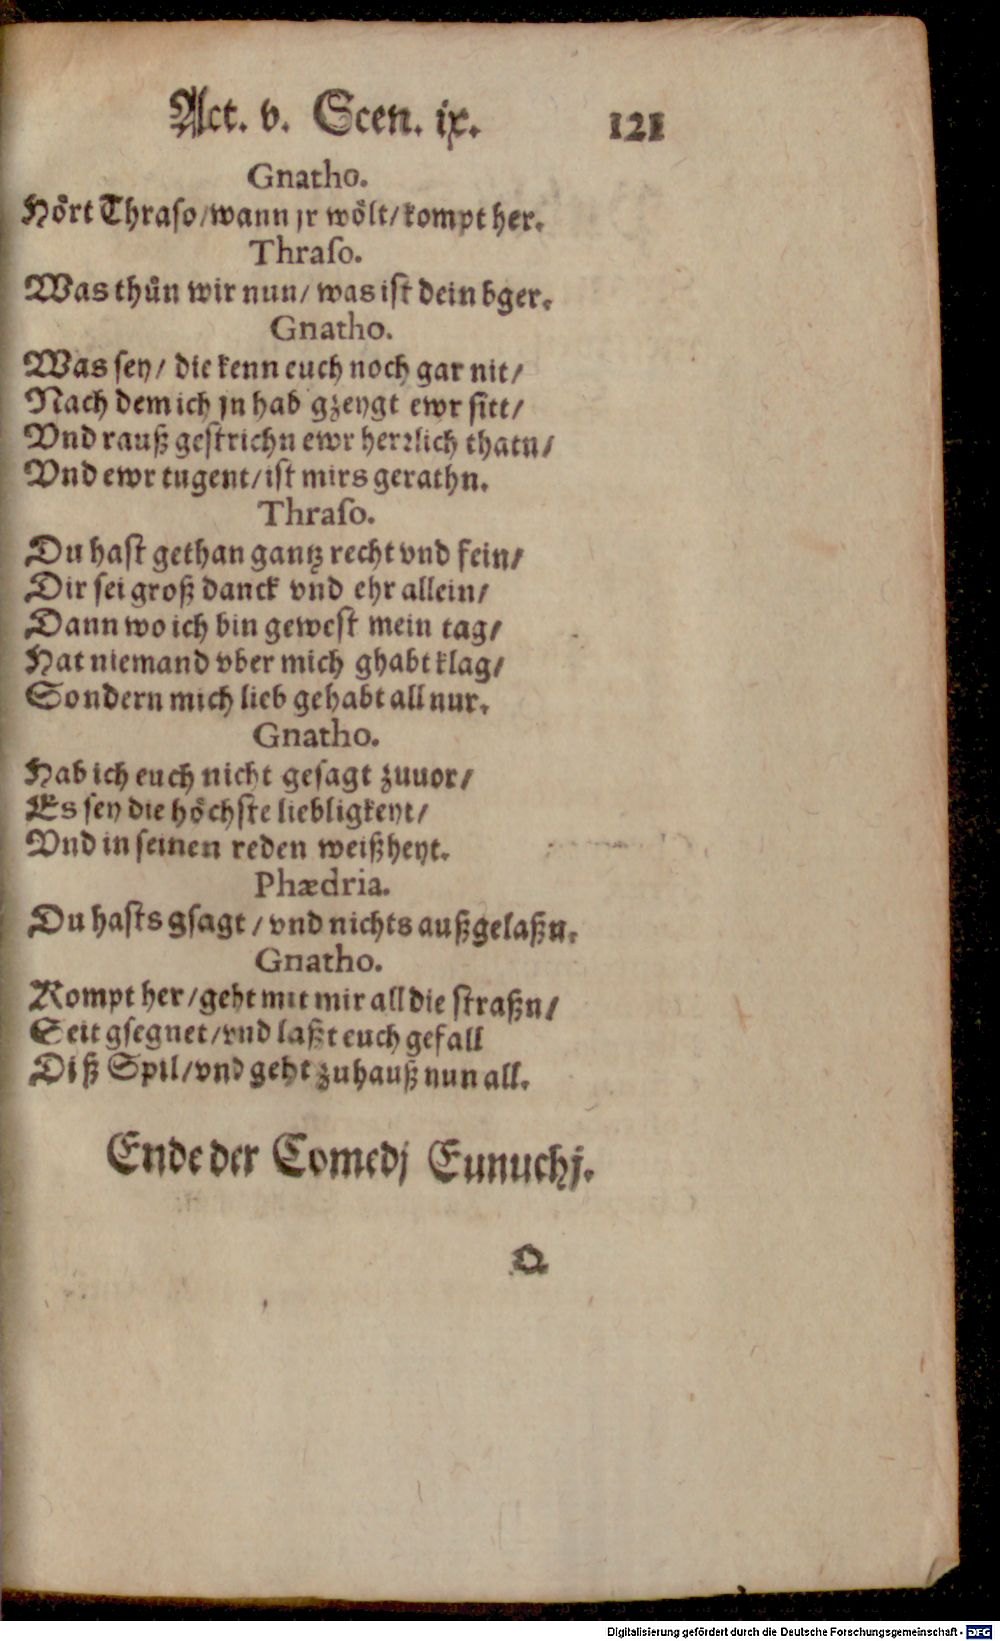 Act. v. Scen. ix. 121
Gnatho.
Hoͤrt Thraso/wann jr woͤlt/kompt her.
Thraſo.
Was thuͦn wir nun/ was iſt dein bger.
Gnatho.
Was ſey/ die kenn euch noch gar nit/
Nach dem ich jn hab gzeygt ewr ſitt/
Vnd rauß geſtrichn ewr herꝛlich thatn/
Vnd ewr tugent/iſt mirs gerathn.
Thraſo.
Du haſt gethan gantz recht vnd fein/
Dir ſei groß danck vnd ehr allein/
Dann wo ich bin geweſt mein tag/
Hat niemand vber mich ghabt klag/
Sondern mich lieb gehabt all nur.
Gnatho.
Hab ich euch nicht geſagt zuuor/
Es ſey die hoͤchſte liebligkeyt/
Vnd in ſeinen reden weißheyt.
Phædria.
Du haſts gſagt / vnd nichts außgelaßn.
Gnatho.
Kompt her/geht mit mir all die ſtraßn/
Seit gſegnet/vnd laßt euch gefall
Diß Spil/vnd geht zuhauß nun all.
Ende der Comedj Eunuchj.
Q
Digitalisierung gefördert durch die Deutsche Forschungsgemeinschaft - DFG